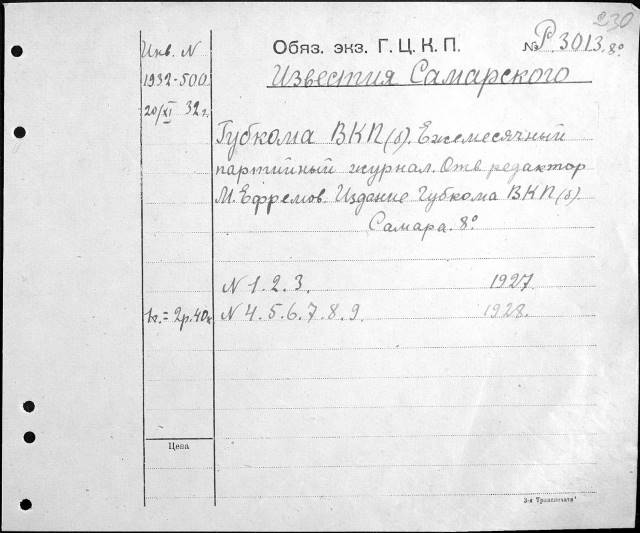 230
Инв. N
1932-500
20/XI 32 г.
Обяз. экз. Г. Ц. К. П.
№ Р. 3013. 8°
Известия Самарского
Губкома ВКП(б). Ежемесячный
партийный журнал. Отв. редактор
М. Ефремов. Издание Губкома ВКП(б).
Самара. 8°
N 1. 2. 3. 1927.
1г. = 2р. 40к
N 4. 5. 6. 7. 8. 9. 1928.
Цена
3-я Транспечати